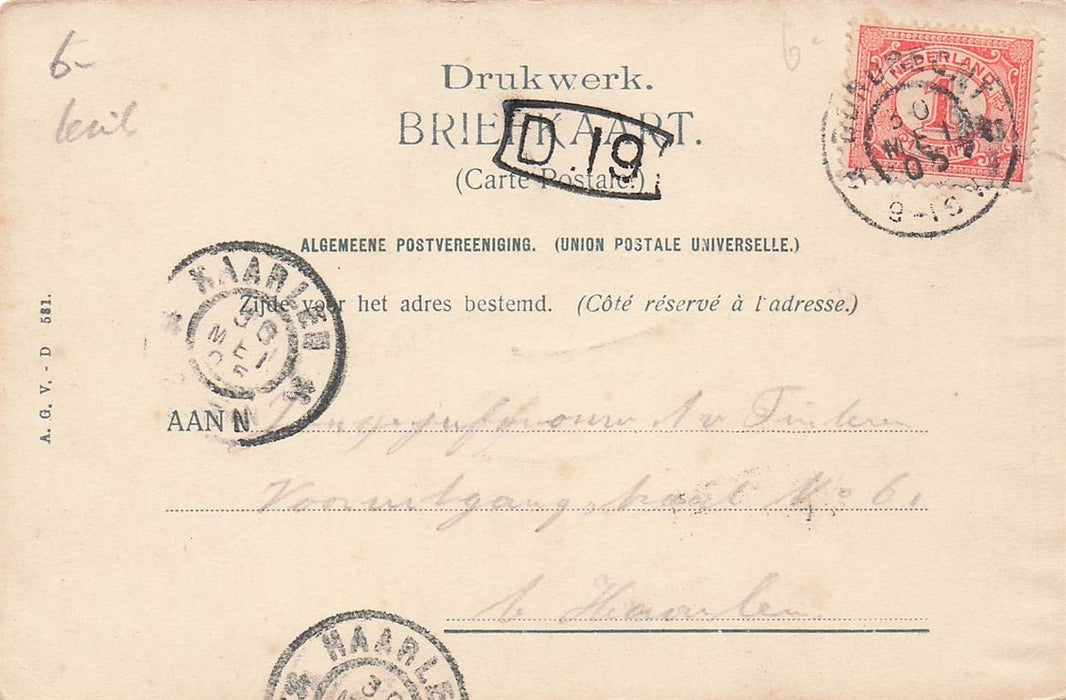 6-
6-
Drukwerk.
BRIEFKAART.
D.19
(Carte Postale.)
NEDERLAND
1
CENT
DORDRECHT
30
MEI
05
8-19 N
ALGEMEENE POSTVEREENIGING. (UNION POSTALE UNIVERSELLE.)
HAARLEM
30
MEI
05
N
Zijde voor het adres bestemd. (Côté réservé à l'adresse.)
A. G. V. - D 581.
AAN Jongejufvrouw A v Tinteren
Vooruitgangstraat No 61
b Haarlem
HAARLE
30